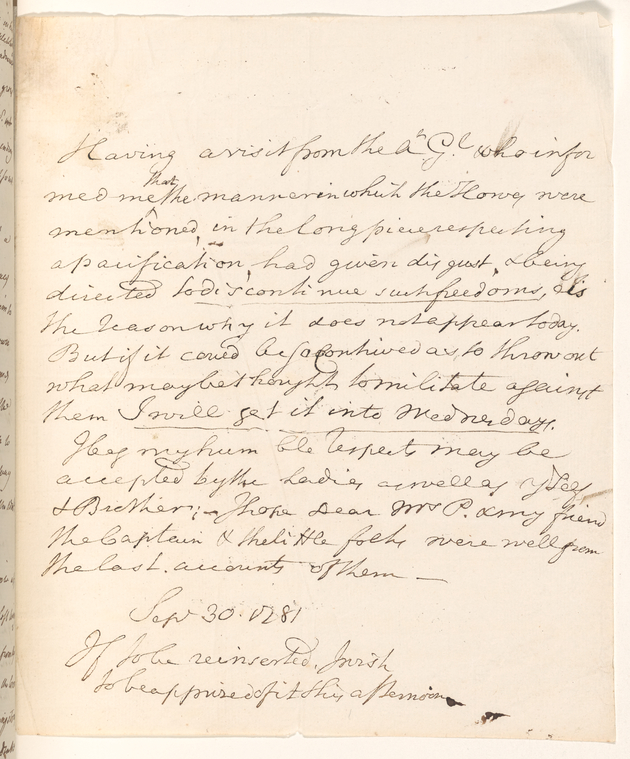 Having a visit from the A^n G^l who infor
med me ^that the manner in which the Howes were
mentioned, in the long piece respecting
a pacification, had given disgust, & being
directed to discontinue such freedoms, is
the reason why it does not appear today.
But if it could be so contrived as, to throw out
what may be thought to militate against
them I will get it into Wednesdays.
I beg my hum ble respects may be
accepted by the Ladies as well as yr Self
& Brother; – I hope dear Mrs P. & my friend
the Captain & the little folks were well from
the last. accounts of them —
Sepr 30. 1781
If to be reinserted, I wish
to be apprized of it this afternoon